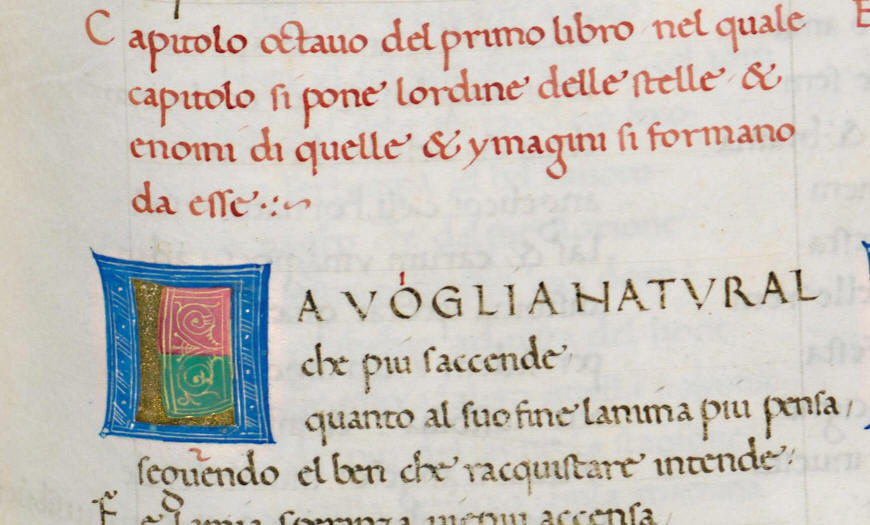 Capitolo octauo del primo libro nel quale
capitolo si pone lordine delle stelle &
enomi di quelle & ymagini si formano
da esse
LA VOGLIA NATVRAL
che piu saccende
quanto al suo fine lanima piu pensa
seguendo el ben che racquistare intende
E
e lamia speranza
accensa